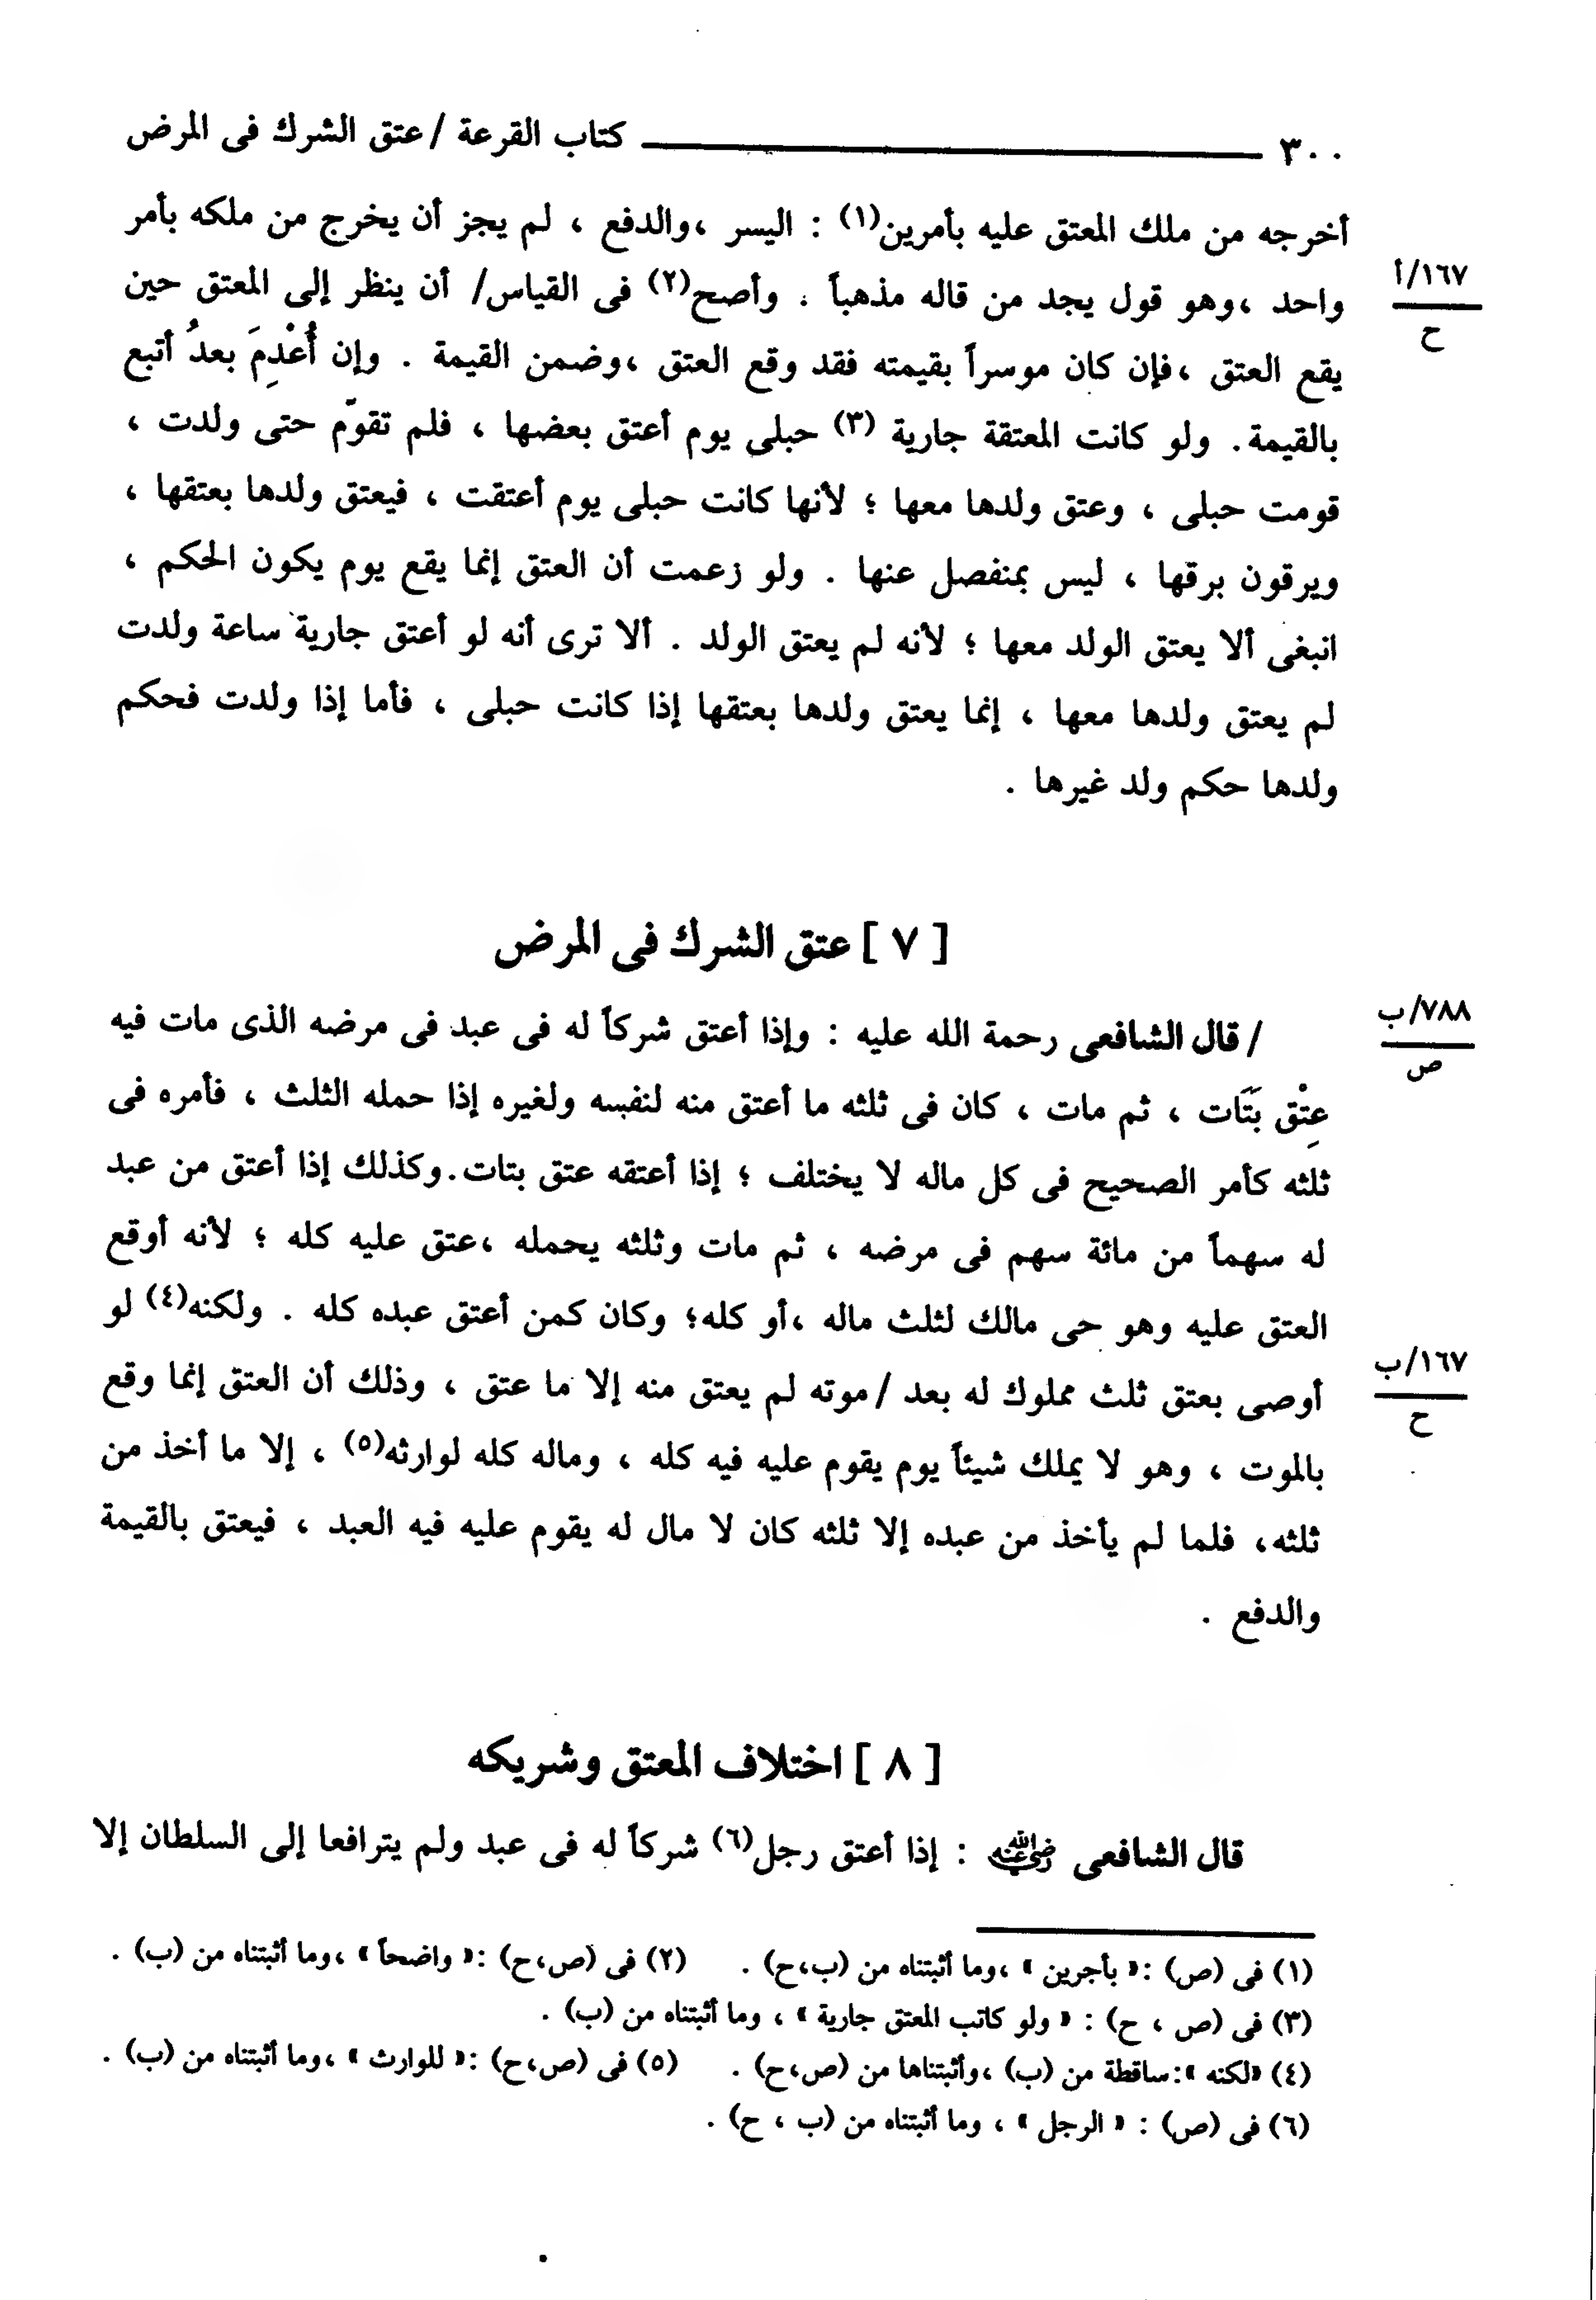 ٣٠٠ كتاب القرعة / عتق الشرك فى المرض
أخرجه من ملك المعتق عليه بأمرين(١) : اليسر ،والدفع ، لم يجز أن يخرج من ملكه بأمر
١٦٧/أ
ح
واحد ،وهو قول يجد من قاله مذهباً . وأصح(٢) فى القياس/ أن ينظر إلى المعتق حين
يقع العتق ،فإن كان موسراً بقيمته فقد وقع العتق ،وضمن القيمة . وإن أُعْدِمَ بعدُ أتبع
بالقيمة. ولو كانت المعتقة جارية (٣) حبلى يوم أعتق بعضها ، فلم تقوّم حتى ولدت ،
قومت حبلى ، وعتق ولدها معها ؛ لأنها كانت حبلى يوم أعتقت ، فيعتق ولدها بعتقها ،
ويرقون برقها ، ليس بمنفصل عنها . ولو زعمت أن العتق إنما يقع يوم يكون الحكم ،
انبغى ألا يعتق الولد معها ؛ لأنه لم يعتق الولد . ألا ترى أنه لو أعتق جارية ساعة ولدت
لم يعتق ولدها معها ، إنما يعتق ولدها بعتقها إذا كانت حبلى ، فأما إذا ولدت فحكم
ولدها حكم ولد غيرها .
[ ٧ ] عتق الشرك فى المرض
٧٨٨/ب
ص
/ قال الشافعى رحمة الله عليه : وإذا أعتق شركاً له فى عبد فى مرضه الذى مات فيه
عِتْقِ بَتَات ، ثم مات ، كان فى ثلثه ما أعتق منه لنفسه ولغيره إذا حمله الثلث ، فأمره فى
ثلثه كأمر الصحيح فى كل ماله لا يختلف ؛ إذا أعتقه عتق بتات.وكذلك إذا أعتق من عبد
له سهماً من مائة سهم فى مرضه ، ثم مات وثلثه يحمله ،عتق عليه كله ؛ لأنه أوقع
العتق عليه وهو حى مالك لثلث ماله ،أو كله؛ وكان كمن أعتق عبده كله . ولكنه(٤) لو
١٦٧/ب
ح
أوصى بعتق ثلث مملوك له بعد /موته لم يعتق منه إلا ما عتق ، وذلك أن العتق إنما وقع
بالموت ، وهو لا يملك شيئاً يوم يقوم عليه فيه كله ، وماله كله لوارثه(٥) ، إلا ما أخذ من
ثلثه، فلما لم يأخذ من عبده إلا ثلثه كان لا مال له يقوم عليه فيه العبد ، فيعتق بالقيمة
والدفع .
[ ٨ ] اختلاف المعتق وشريكه
قال الشافعى رضي الله عنه : إذا أعتق رجل(٦) شركاً له فى عبد ولم يترافعا إلى السلطان إلا
(١) فى (ص) :« بأجرين » ،وما أثبتناه من (ب،ح) . (٢) فى (ص،ح) :« واضحاً » ،وما أثبتناه من (ب) .
(٣) فى (ص ، ح) : « ولو كاتب المعتق جارية » ، وما أثبتناه من (ب) .
(٤) «لكنه »:ساقطة من (ب) ،وأثبتناها من (ص،ح) . (٥) فى (ص،ح) :« للوارث » ،وما أثبتناه من (ب) .
(٦) فى (ص) : « الرجل » ، وما أثبتناه من (ب ، ح) .